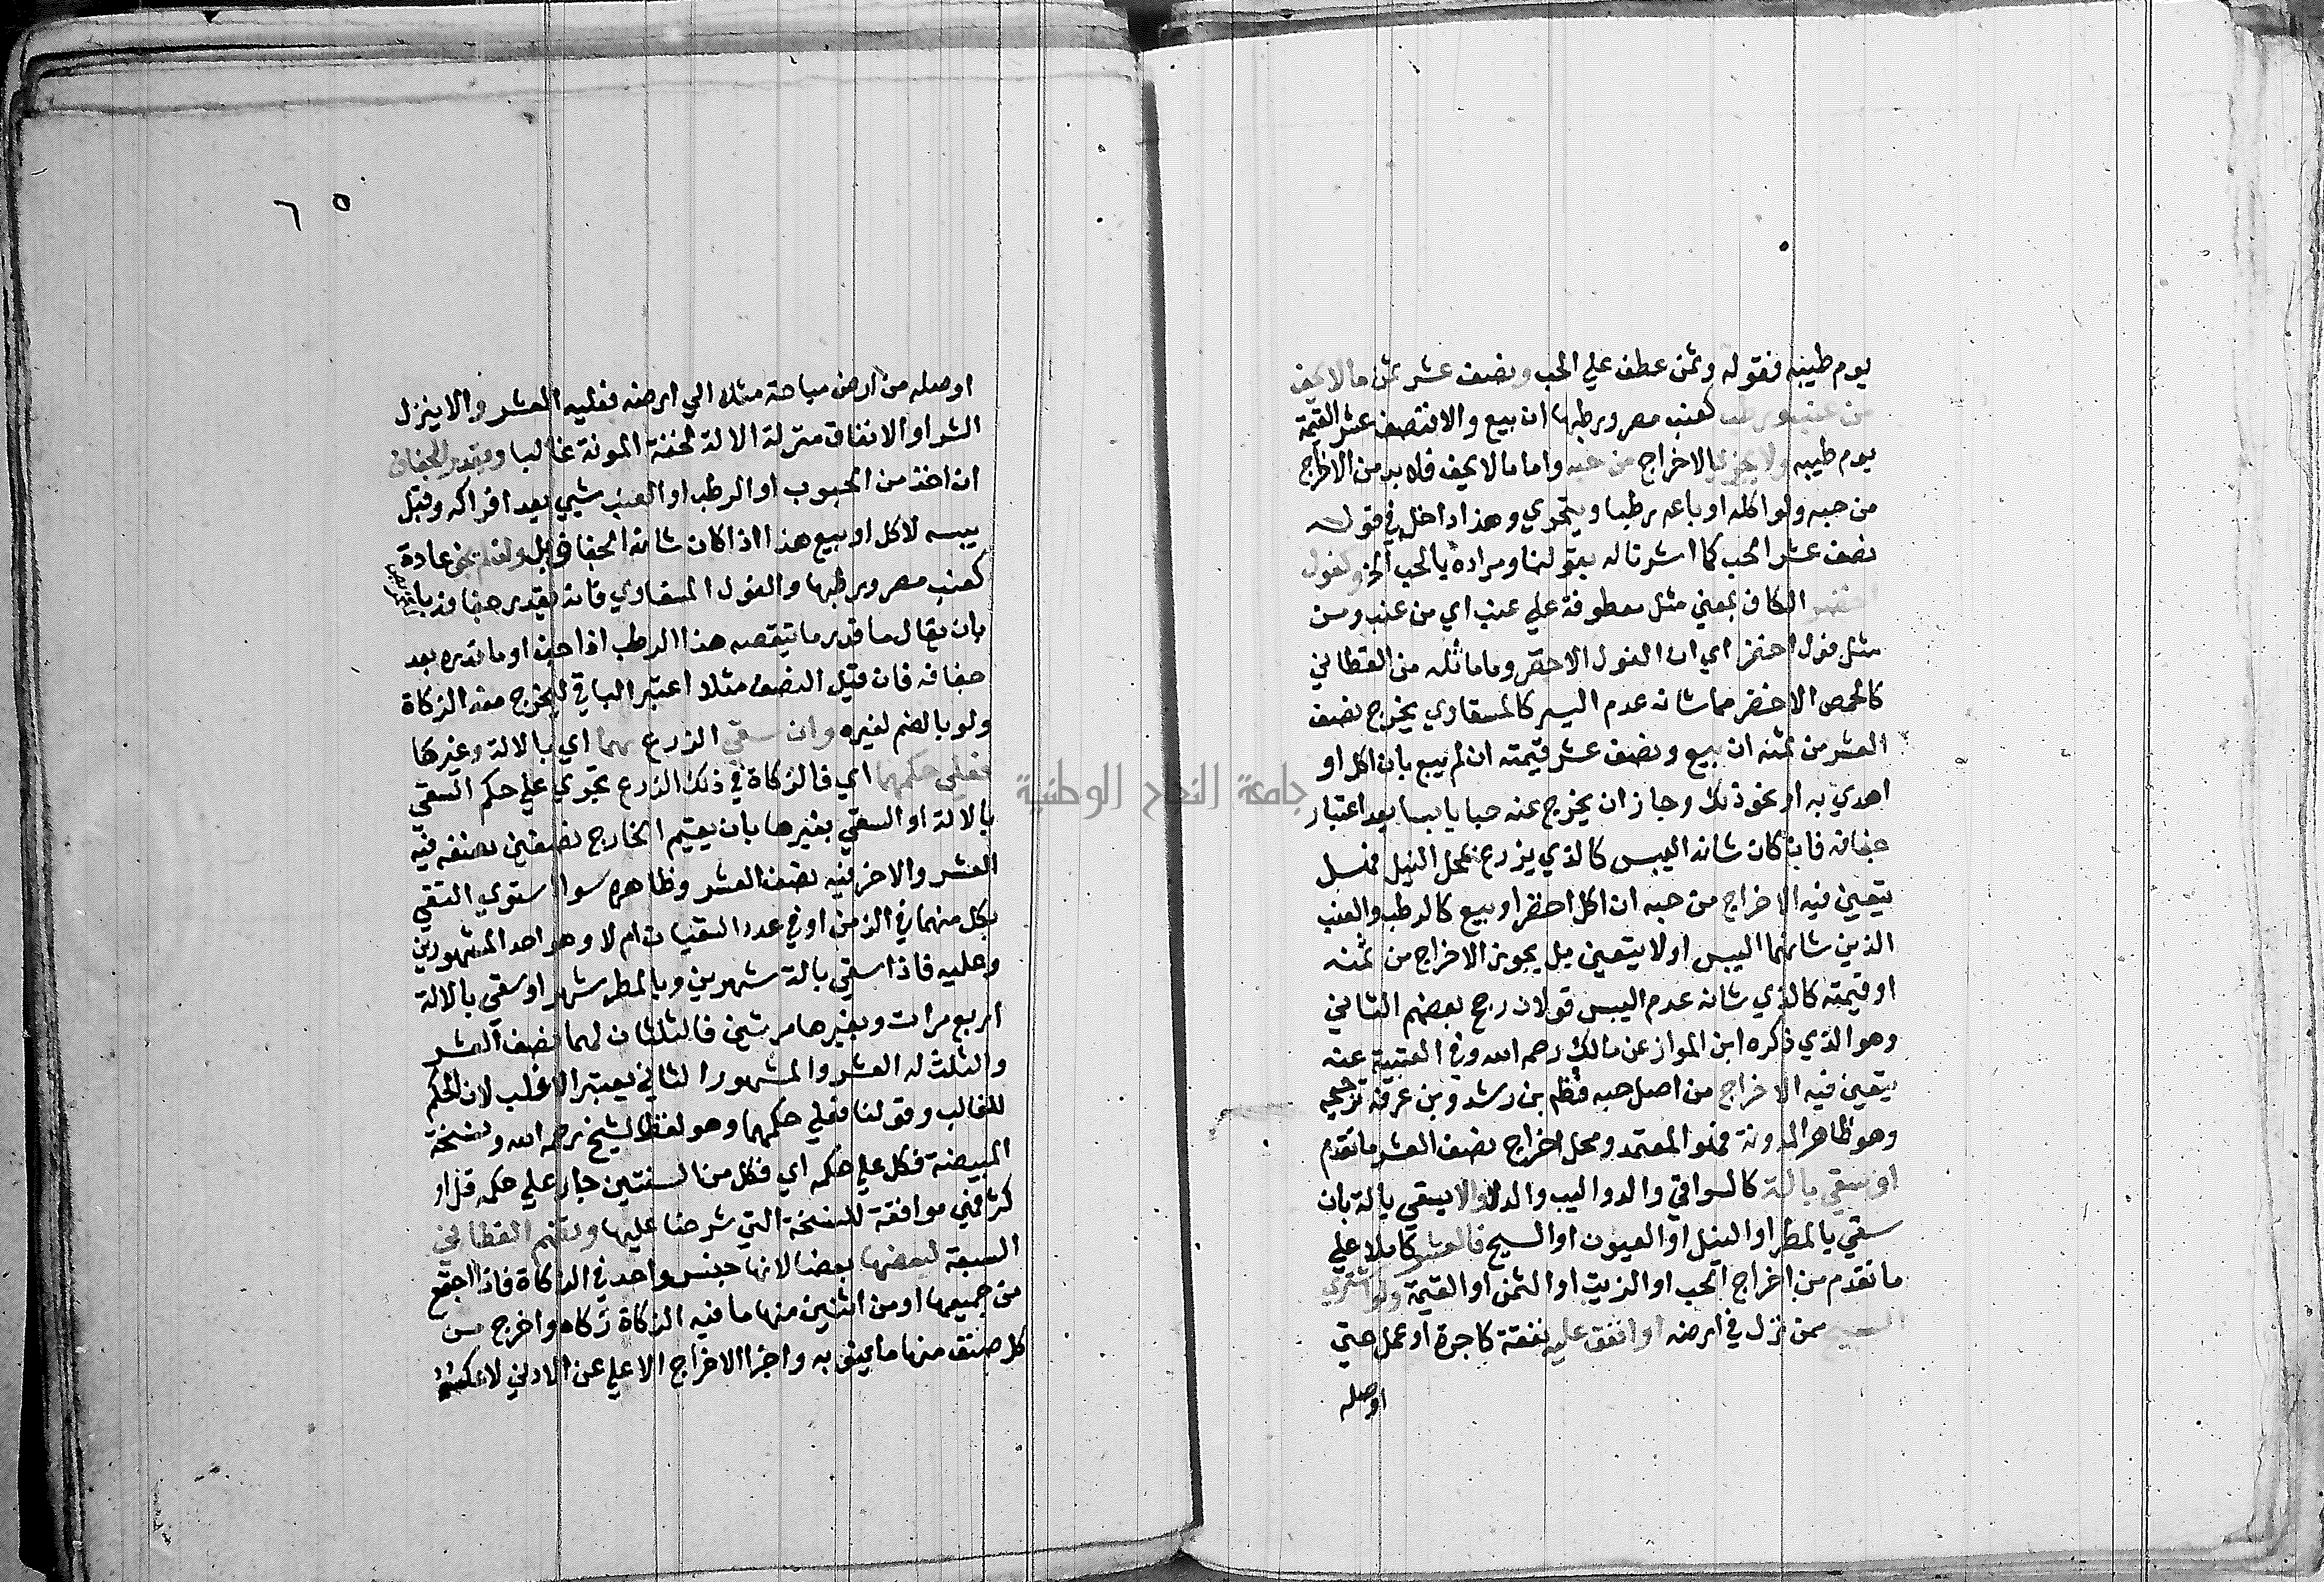 يوم طيبه فقوله وثمن عطف علي الحب ونصف عشر ثمن ما لا يجف
من عنب ورطب كعنب مصر ورطبها ان بيع والا فنصف عشر القيمة
يوم طيبه ولا يجزي الاخراج من حبه واما ما لا يجف فلا بد من الاخراج
من حبه ولو اكله او باعه رطبا ويتحري وهذا داخل في قوله
نصف عشر الحب كما اشرنا له بقولنا ومراده بالحب الخ وكفول
اخضر الكاف بمعني مثل معطوفة علي عنب اي من عنب ومن
مثل فول اخضر اي ان الفول الاخضر وما ماثله من القطاني
كالحمص الاخضر مما شانه عدم اليبس كالمسقاوي يخرج نصف
العشر من ثمنه ان بيع ونصف عشر قيمته ان لم يبع بان اكل او
اهدي به او نحو ذلك وجاز ان يخرج عنه حبا يابسا بعد اعتبار
جفافه فان كان شانه اليبس كالذي يزرع بمحل النيل فهل
يتعين فيه الاخراج من حبه ان اكل اخضر او بيع كالرطب والعنب
الذين شانهما اليبس او لا يتعين بل يجوز الاخراج من ثمنه
او قيمته كالذي شانه عدم اليبس قولان رجح بعضهم الثاني
وهو الذي ذكره ابن المواز عن مالك رحمه الله وفي العتبية عنه
يتعين فيه الاخراج من اصل حبه بن رشد وبن عرفة ترجيحه
وهو ظاهر المدونة فهو المعتمد ومحل اخراج نصف العشر ما تقدم
ان سقي بالة كالسواقي والدواليب والدلا والا يسقي بالة بان
سقي بالمطر او النيل او العيون او السيح فالعشر كاملا علي
ما تقدم من اخراج الحب او الزيت او الثمن او القيمة ولو اشتري
السيح ممن نزل في ارضه او انفق عليه نفقة كاجرة او عمل حتي
اوصله
٦٥
اوصله من ارض مباحة مثلا الي ارضه فعليه العشر والا ينزل
الشرا والانفاق منزلة الالة لخفة المونة غالبا ويقدر الجفاف
ان اخذ من الحبوب او الرطب او العنب شيي بعد افراكه وقبل
يبسه لاكل او بيع هذا اذا كان شانه الجفاف بل ولو لم يجف عادة
كعنب مصر ورطبها والفول المسقاوي فانه يقدر جفافه
بان يقال ما قدر ما ينقصه هذا الرطب اذا جف او ما قدره بعد
جفافه فان قيل النصف مثلا اعتبر الباقي ليخرج منه الزكاة
ولو بالضم لغيره وان سقي الزرع بهما اي بالالة وغيرها
فعلي حكمهما اي فالزكاة في ذلك الزرع تجري علي حكم السقي
بالالة او السقي بغيرها بان يقيم الخارج نصفين نصفه فيه
العشر والاخر فيه نصف العشر وظاهره سوا استوي السقي
بكل منهما في الزمن او في عدد السقيات ام لا وهو احد المشهورين
وعليه فاذا سقي بالة شهرين وبالمطر شهر او سقي بالالة
اربع مرات وبغيرها مرتين فالثلثان لهما نصف العشر
والثلث له العشر والمشهور الثاني يعتبر الاغلب لان الحكم
للغالب وقولنا فعلي حكمهما وهو لفظ الشيخ رحمه الله ونسخة
المبيضة فكل علي حكمه اي فكل من السنتين جار علي حكمه قل او
كثر فهي موافقة للنسخة التي شرحنا عليها وتضم القطاني
السبعة لبعضها بعضا لانها جنس واحد في الزكاة فاذا اجتمع
من جميعها او من اثنين منها ما فيه الزكاة زكاه واخرج من
كل صنف منها ما ينوبه واجزا الاخراج الاعلي عن الادني لا عكسه